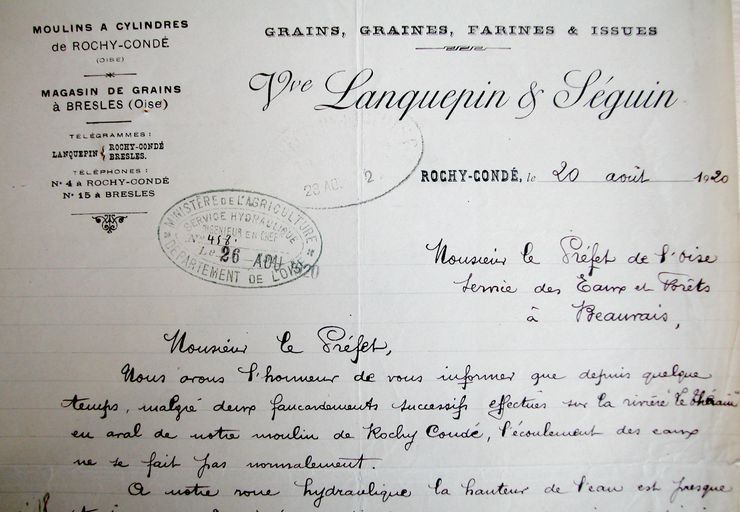 MOULINS A CYLINDRES
de ROCHY-CONDÉ
(OISE)
MAGASIN DE GRAINS
à BRESLES (Oise)
TÉLÉGRAMMES :
LANQUEPIN { ROCHY-CONDÉ
BRESLES.
TÉLÉPHONES :
N° 4 à ROCHY-CONDÉ
N° 15 à BRESLES
GRAINS, GRAINES, FARINES & ISSUES
Vve Lanquepin & Séguin
ROCHY-CONDÉ, le 20 août 1920
MINISTÈRE DE L'AGRICULTURE
SERVICE HYDRAULIQUE
INGÉNIEUR EN CHEF
N° 458.
Le 26 AOU 1920
DÉPARTEMENT DE L'OISE
Monsieur le Préfet de l'Oise
Service des Eaux et Forêts
à Beauvais,
Monsieur le Préfet,
Nous avons l'honneur de vous informer que depuis quelque
temps, malgré deux faucardements successifs effectués sur la rivière le Thérain
en aval de notre moulin de Rochy Condé, l'écoulement des eaux
ne se fait pas normalement.
A notre roue hydraulique la hauteur de l'eau est presque